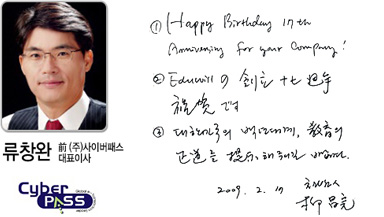 류창완 前 (주)사이버패스
대표이사
Cyber PASS
① Happy Birthday 17th
Anniversary for your Company!
② Eduwill の 創立 十七 周年
祝賀 です
③ 대한민국의 백년대계, 教育の
正道를 提示해 주시길 바랍니다.
2009. 2. 17
柳昌完